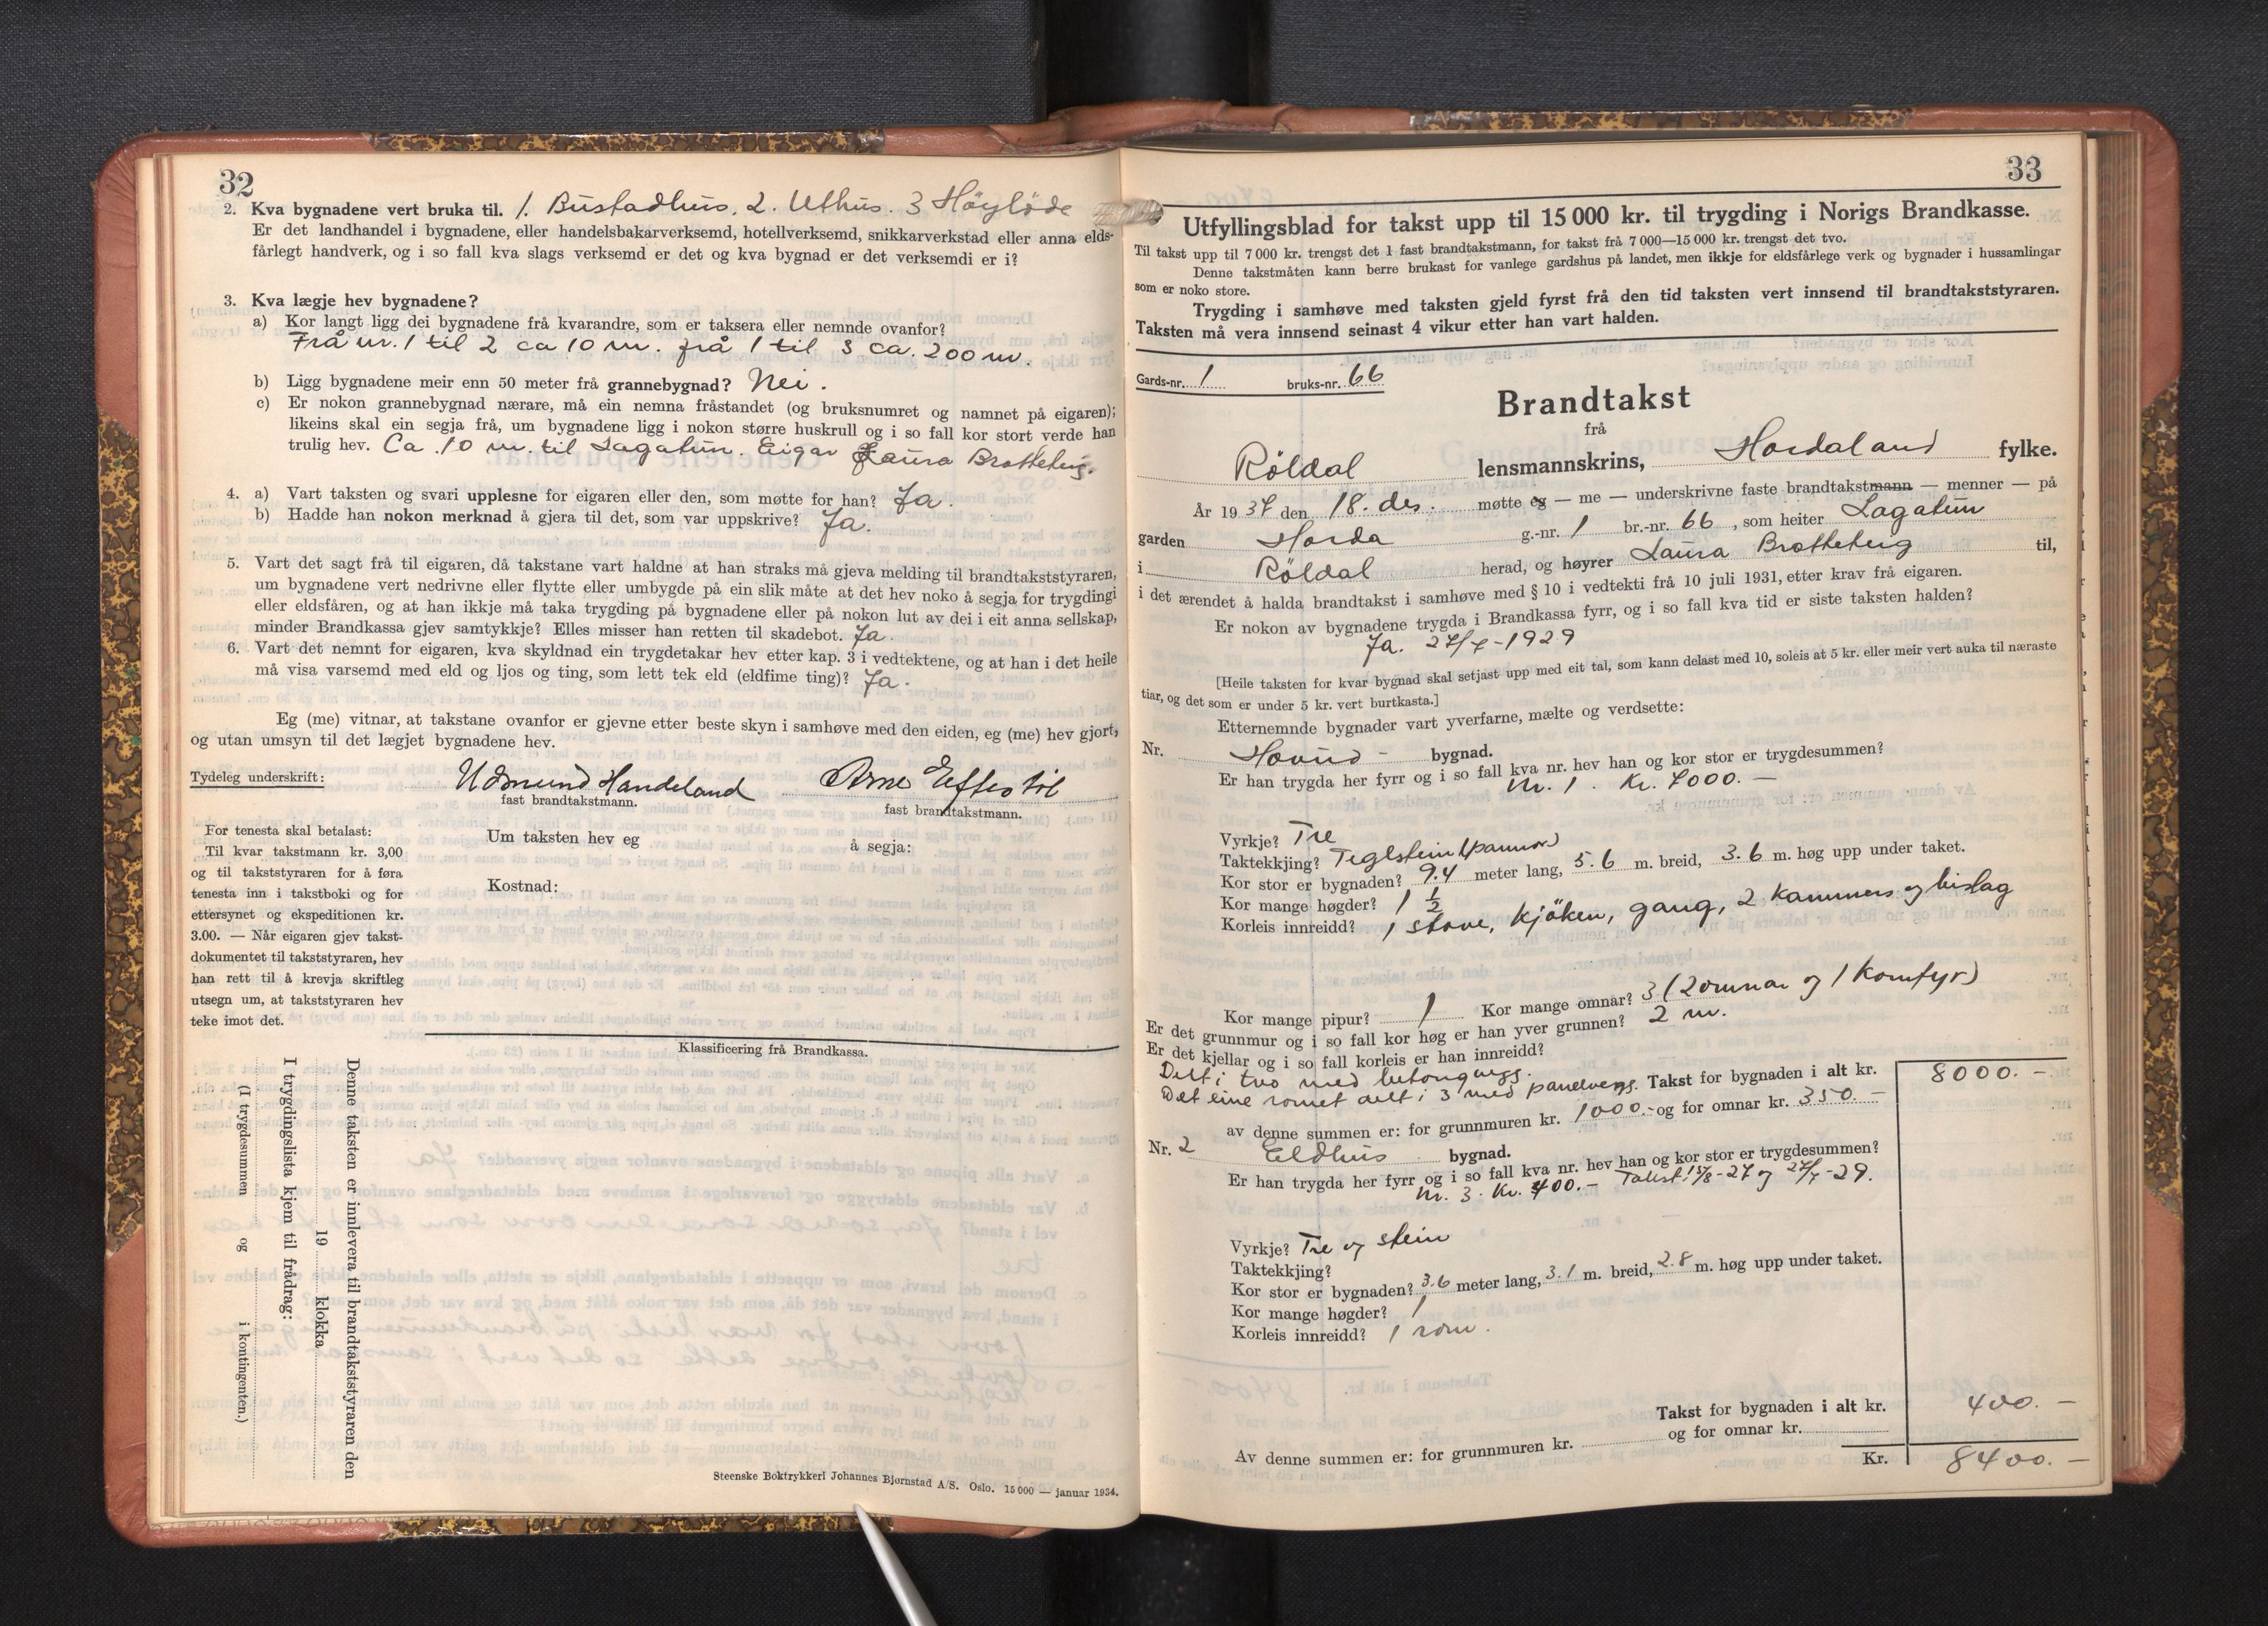 32
2. Kva bygnadene vert bruka til. 1. Bustadhus. 2. Uthus. 3 Höyløde
Er det landhandel i bygnadene, eller handelsbakarverksemd, hotellverksemd, snikkarverkstad eller anna elds-
fårlegt handverk, og i so fall kva slags verksemd er det og kva bygnad er det verksemdi er i?
3. Kva lægje hev bygnadene?
a) Kor langt ligg dei bygnadene frå kvarandre, som er taksera eller nemnde ovanfor?
Frå nr. 1 til 2 ca 10 m. frå 1 til 3 ca. 200 m.
b) Ligg bygnadene meir enn 50 meter frå grannebygnad? Nei.
c) Er nokon grannebygnad nærare, må ein nemna fråstandet (og bruksnumret og namnet på eigaren);
likeins skal ein segja frå, um bygnadene ligg i nokon større huskrull og i so fall kor stort verde han
trulig hev. Ca. 10 m. til Lagatun. Eigar Laura Brotteberg.
4. a) Vart taksten og svari upplesne for eigaren eller den, som møtte for han? Ja.
b) Hadde han nokon merknad å gjera til det, som var uppskrive? Ja.
5. Vart det sagt frå til eigaren, då takstane vart haldne at han straks må gjeva melding til brandtakststyraren,
um bygnadene vert nedrivne eller flytte eller umbygde på ein slik måte at det hev noko å segja for trygdingi
eller eldsfåren, og at han ikkje må taka trygding på bygnadene eller på nokon lut av dei i eit anna sellskap,
minder Brandkassa gjev samtykkje? Elles misser han retten til skadebot. Ja.
6. Vart det nemnt for eigaren, kva skyldnad ein trygdetakar hev etter kap. 3 i vedtektene, og at han i det heile
må visa varsemd med eld og ljos og ting, som lett tek eld (eldfime ting)? Ja.
Eg (me) vitnar, at takstane ovanfor er gjevne etter beste skyn i samhøve med den eiden, eg (me) hev gjort,
og utan umsyn til det lægjet bygnadene hev.
Tydeleg underskrift: Udmund Handeland Arne Eftestöl
fast brandtakstmann. fast brandtakstmann.
For tenesta skal betalast:
Til kvar takstmann kr. 3,00
og til takststyraren for å føra
tenesta inn i takstboki og for
ettersynet og ekspeditionen kr.
3.00. — Når eigaren gjev takst-
dokumentet til takststyraren, hev
han rett til å krevja skriftleg
utsegn um, at takststyraren hev
teke imot det.
Um taksten hev eg å segja:
Kostnad:
Klassificering frå Brandkassa.
Denne taksten er innlevera til brandtakststyraren den
19 klokka
I trygdingslista kjem til frådrag:
(I trygdesummen og i kontingenten.)
Steenske Boktrykkeri Johannes Bjørnstad A/S. Oslo. 15 000 — januar 1934.
33
Utfyllingsblad for takst upp til 15 000 kr. til trygding i Norigs Brandkasse.
Til takst upp til 7 000 kr. trengst det 1 fast brandtakstmann, for takst frå 7 000—15 000 kr. trengst det tvo.
Denne takstmåten kann berre brukast for vanlege gardshus på landet, men ikkje for eldsfårlege verk og bygnader i hussamlingar
som er noko store.
Trygding i samhøve med taksten gjeld fyrst frå den tid taksten vert innsend til brandtakststyraren.
Taksten må vera innsend seinast 4 vikur etter han vart halden.
Gards-nr. 1 bruks-nr. 66
Brandtakst
frå
Röldal lensmannskrins, Hordaland fylke.
År 1937 den 18. des. møtte eg — me — underskrivne faste brandtakstmann — menner — på
garden Horda g.-nr. 1 br.-nr. 66, som heiter Lagatun
i Röldal herad, og høyrer Laura Brotteberg til,
i det ærendet å halda brandtakst i samhøve med § 10 i vedtekti frå 10 juli 1931, etter krav frå eigaren.
Er nokon av bygnadene trygda i Brandkassa fyrr, og i so fall kva tid er siste taksten halden?
Ja. 27/7-1929
[Heile taksten for kvar bygnad skal setjast upp med eit tal, som kann delast med 10, soleis at 5 kr. eller meir vert auka til næraste
tiar, og det som er under 5 kr. vert burtkasta.]
Etternemnde bygnader vart yverfarne, mælte og verdsette:
Nr. Hovud- bygnad.
Er han trygda her fyrr og i so fall kva nr. hev han og kor stor er trygdesummen?
Nr. 1. Kr. 7000.—
Vyrkje? Tre
Taktekkjing? Teglstein (pannor)
Kor stor er bygnaden? 9.4 meter lang, 5.6 m. breid, 3.6 m. høg upp under taket.
Kor mange høgder? 1 1/2
Korleis innreidd? 1 stove, kjöken, gang, 2 kammers og bislag
Kor mange pipur? 1 Kor mange omnar? 3 (2 omnar og 1 komfyr)
Er det grunnmur og i so fall kor høg er han yver grunnen? 2 m.
Er det kjellar og i so fall korleis er han innreidd?
Delt i tvo med betongvegg.
Det eine romet delt i 3 med panelvegg. Takst for bygnaden i alt kr. 8000.—
av denne summen er: for grunnmuren kr. 1000.- og for omnar kr. 350.—
Nr. 2 Eldhus bygnad.
Er han trygda her fyrr og i so fall kva nr. hev han og kor stor er trygdesummen?
Nr. 3. Kr. 400.— Takst: 15/8-27 og 27/7-29.
Vyrkje? Tre og stein
Taktekkjing?
Kor stor er bygnaden? 3.6 meter lang, 3.1 m. breid, 2.8 m. høg upp under taket.
Kor mange høgder? 1
Korleis innreidd? 1 rom.
Takst for bygnaden i alt kr. 400.—
Av denne summen er: for grunnmuren kr. og for omnar kr.
Kr. 8400.—